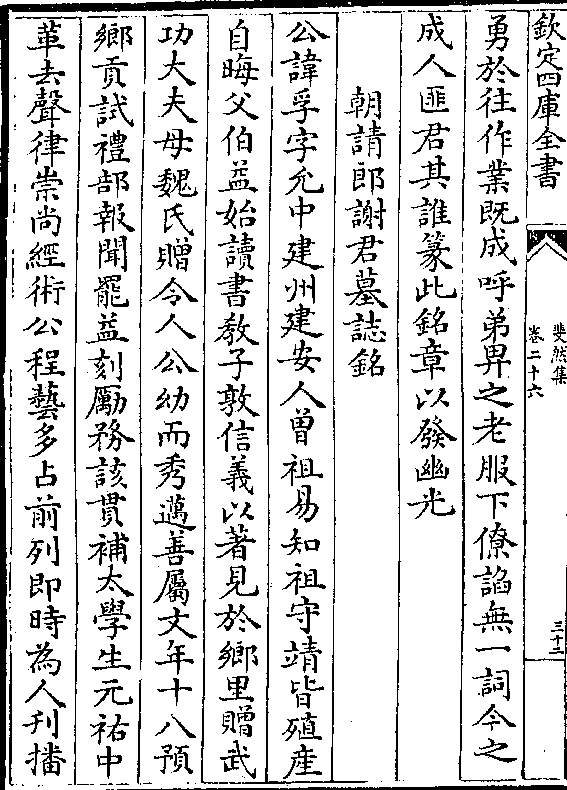 欽定四庫全書
斐然集
卷二十六
三十二
勇於往作業既成呼弟畀之老服下僚諂無一詞今之
成人匪君其誰篆此銘章以發幽光
朝請郎謝君墓誌銘
公諱孚字允中建州建安人曽祖易知祖守靖皆殖産
自晦父伯益始讀書教子敦信義以著見於鄉里贈武
功大夫母魏氏贈令人公幼而秀邁善屬文年十八預
鄉貢試禮部報聞罷益刻勵務該貫補太學生元祐中
革去聲律崇尚經術公程藝多占前列即時為人刊播